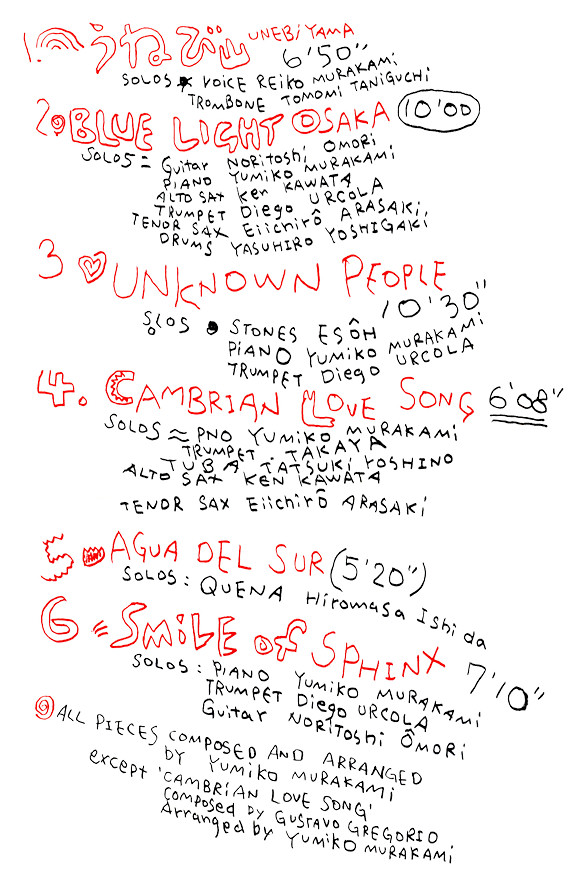 1. うねび山 UNEBIYAMA
6'50"
SOLOS VOICE REIKO MURAKAMI
TROMBONE TOMOMI TANIGUCHI
2. BLUE LIGHT OSAKA 10'00
SOLOS = Guitar NORITOSHi ÔMORi
PIANO YUMIKO MURAKAMI
ALTO SAX Ken KAWATA
TRUMPET Diego URCOLA
TENOR SAX Eiichirô ARASAKi
DRUMS YASUHIRO YOSHIGAKi
3 ♡ UNKNOWN PEOPLE
10'30"
SOLOS • STONES ESÔH
PiANO YUMiKO MURAKAMi
TRUMPET Diego URCOLA
4. CAMBRIAN LOVE SONG 6'08"
SOLOS ≈ PNO YUMIKO MURAKAMi
TRUMPET . TAKAYA
TUBA TATSUKi YOSHINO
ALTO SAX KEN KAWATA
TENOR SAX Eiichirô ARASAKi
5 AGUA DEL SUR (5'20")
SOLOS : QUENA Hiromasa Ishida
6 = SMiLE of SPHINX 7'10"
SOLOS : PIANO YUMIKO MURAKAMi
TRUMPET Diego URCOLA
Guitar NORiTOSHi ÔMORi
ALL PIECES COMPOSED AND ARRANGED
BY YUMIKO MURAKAMi
except 'CAMBRIAN LOVE SONG'
composed by GUSTAVO GREGORIO
Arranged by YUMIKO MURAKAMi